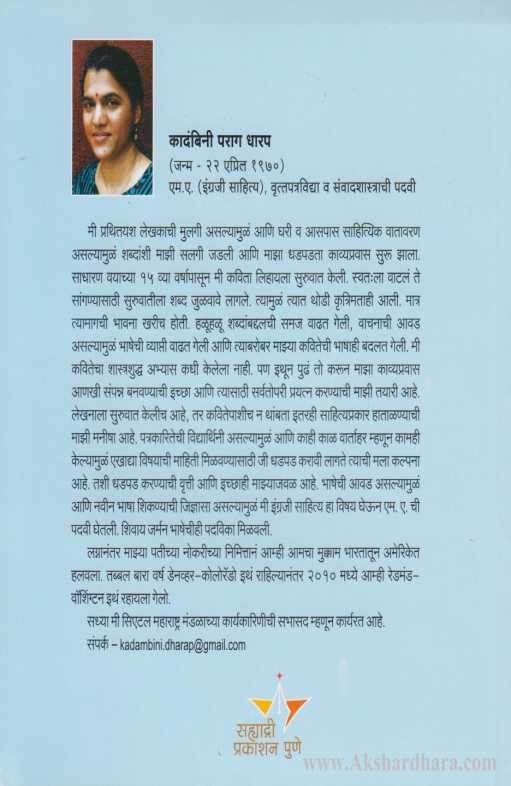 कादंबिनी पराग धारप
(जन्म - २२ एप्रिल १९७०)
एम.ए. (इंग्रजी साहित्य), वृत्तपत्रविद्या व संवादशास्त्राची पदवी
मी प्रथितयश लेखकाची मुलगी असल्यामुळं आणि घरी व आसपास साहित्यिक वातावरण
असल्यामुळं शब्दांशी माझी सलगी जडली आणि माझा धडपडता काव्यप्रवास सुरू झाला.
साधारण वयाच्या १५ व्या वर्षापासून मी कविता लिहायला सुरुवात केली. स्वतःला वाटलं ते
सांगण्यासाठी सुरुवातीला शब्द जुळवावे लागले. त्यामुळं त्यात थोडी कृत्रिमताही आली. मात्र
त्यामागची भावना खरीच होती. हळूहळू शब्दांबद्दलची समज वाढत गेली, वाचनाची आवड
असल्यामुळं भाषेची व्याप्ती वाढत गेली आणि त्याबरोबर माझ्या कवितेची भाषाही बदलत गेली. मी
कवितेचा शास्त्रशुद्ध अभ्यास कधी केलेला नाही. पण इथून पुढं तो करून माझा काव्यप्रवास
आणखी संपन्न बनवण्याची इच्छा आणि त्यासाठी सर्वतोपरी प्रयत्न करण्याची माझी तयारी आहे.
लेखनाला सुरुवात केलीच आहे, तर कवितेपाशीच न थांबता इतरही साहित्यप्रकार हाताळण्याची
माझी मनीषा आहे. पत्रकारितेची विद्यार्थिनी असल्यामुळं आणि काही काळ वार्ताहर म्हणून कामही
केल्यामुळं एखाद्या विषयाची माहिती मिळवण्यासाठी जी धडपड करावी लागते त्याची मला कल्पना
आहे. तशी धडपड करण्याची वृत्ती आणि इच्छाही माझ्याजवळ आहे. भाषेची आवड असल्यामुळं
आणि नवीन भाषा शिकण्याची जिज्ञासा असल्यामुळं मी इंग्रजी साहित्य हा विषय घेऊन एम. ए. ची
पदवी घेतली. शिवाय जर्मन भाषेचीही पदविका मिळवली.
लग्नानंतर माझ्या पतीच्या नोकरीच्या निमित्तानं आम्ही आमचा मुक्काम भारतातून अमेरिकेत
हलवला. तब्बल बारा वर्ष डेनव्हर-कोलोरॅडो इथं राहिल्यानंतर २०१० मध्ये आम्ही रेडमंड-
वॉशिंग्टन इथं रहायला गेलो.
सध्या मी सिएटल महाराष्ट्र मंडळाच्या कार्यकारिणीची सभासद म्हणून कार्यरत आहे.
संपर्क – kadambini.dharap@gmail.com
सह्याद्री
प्रकाशन पुणे
www.Akshardhara.com